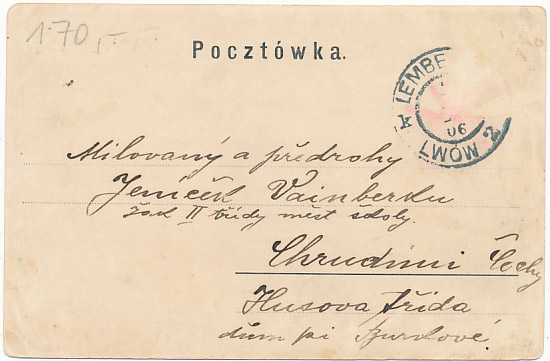 170,-
Pocztówka.
LEMBE
06
k LWÓW 2
Milovaný a předrohy
Jeníček Vainberku
žák II třídy měst školy.
Chrudimi Čechy
Husova třída
dům pí